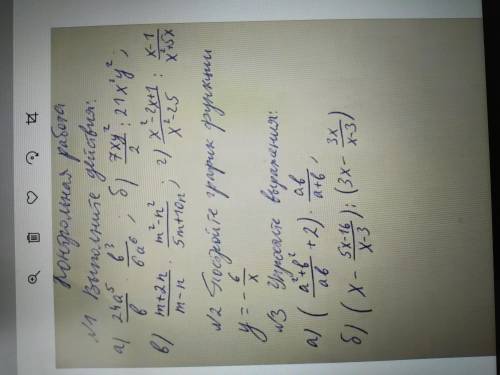 Контрольная работа
№1 Выполните действия:
а) 24a⁵/b · b³/6a⁶ ; б) 7xy²/2 : 21x²y² ;
в) m+2n/m-n · m²-n²/5m+10n ; г) x²-2x+1/x²-25 : x-1/x²+5x
№2 Постройте график функции
y = - 6/x
№3 Упростите выражения:
а) ( a²+b²/ab + 2) · ab/a+b ;
б) ( x - 5x-16/x-3 ) : (3x - 3x/x-3 )